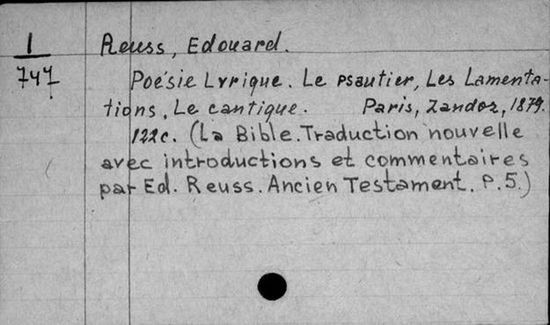 1
747
Reuss, Edouard.
Poésie Lyrique. Le psautier, Les Lamenta-
tions, Le cantique. Paris, Zandoz, 1879.
122c. (La Bible. Traduction nouvelle
avec introductions et commentaires
par Ed. Reuss. Ancien Testament. P.5.)